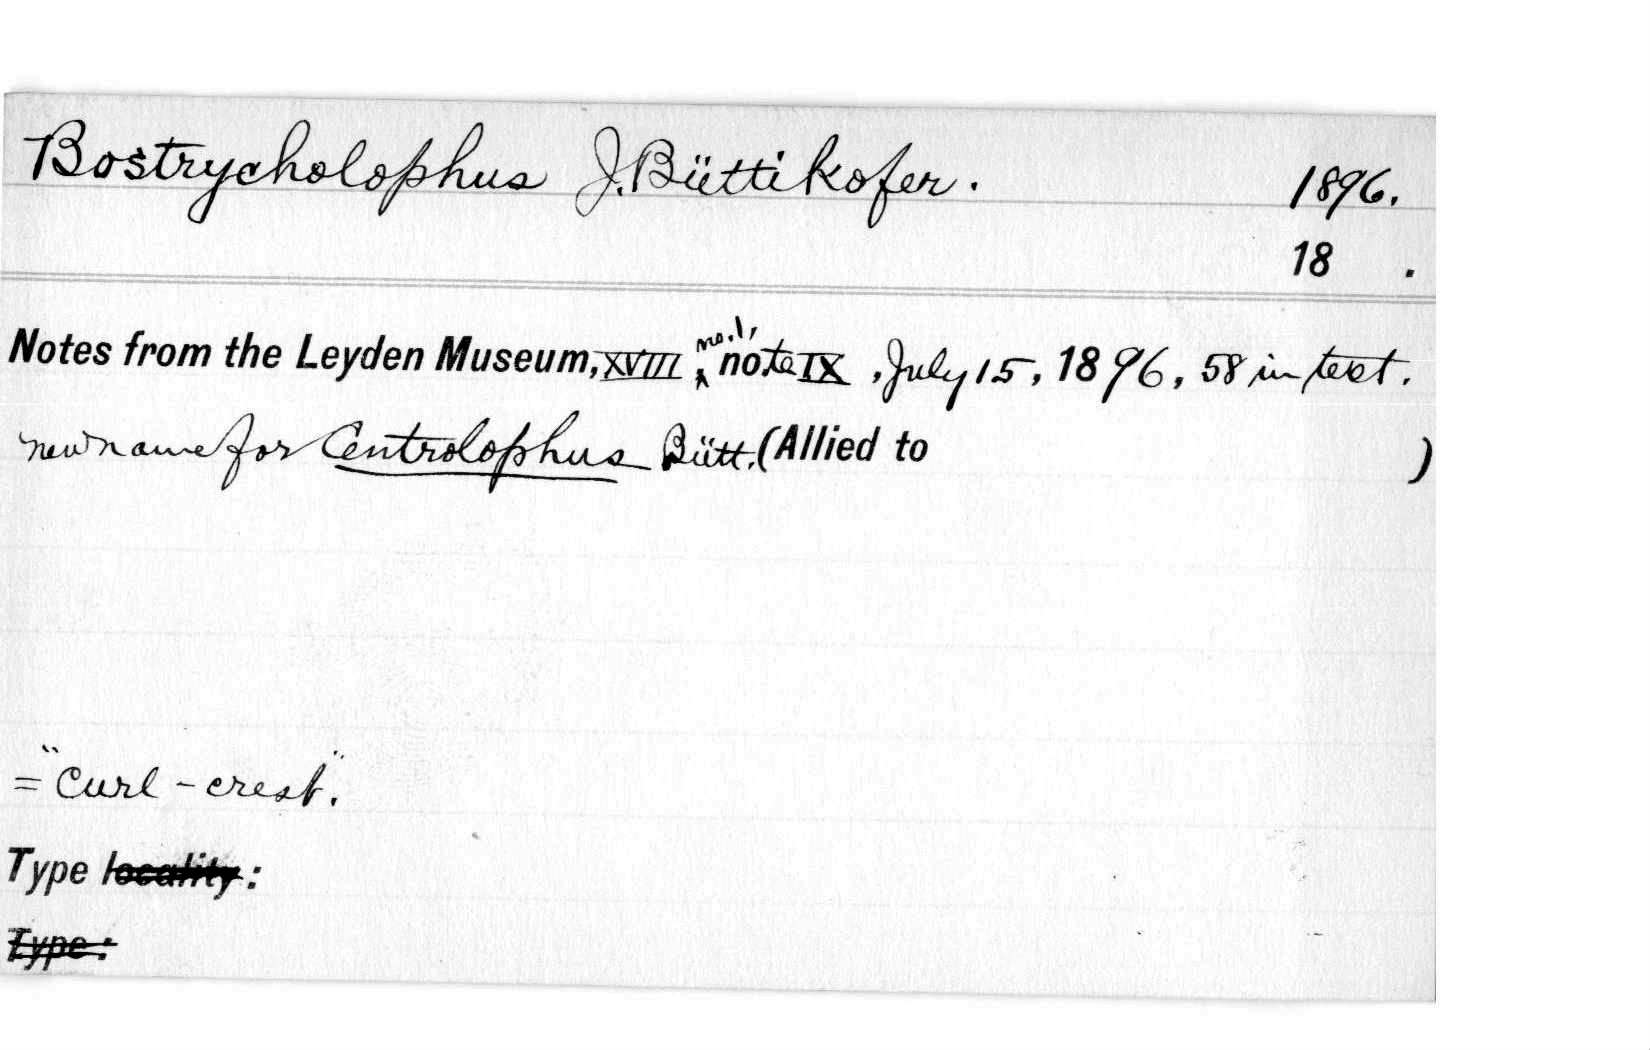 Bostrycholophus J. Büttikofer. 1896.
18 .
Notes from the Leyden Museum, XVIII, no. 1, note IX, July 15, 1896, 58 in text.
new name for Centrolophus Bütt. (Allied to )
= "Curl-crest".
Type locality:
Type: